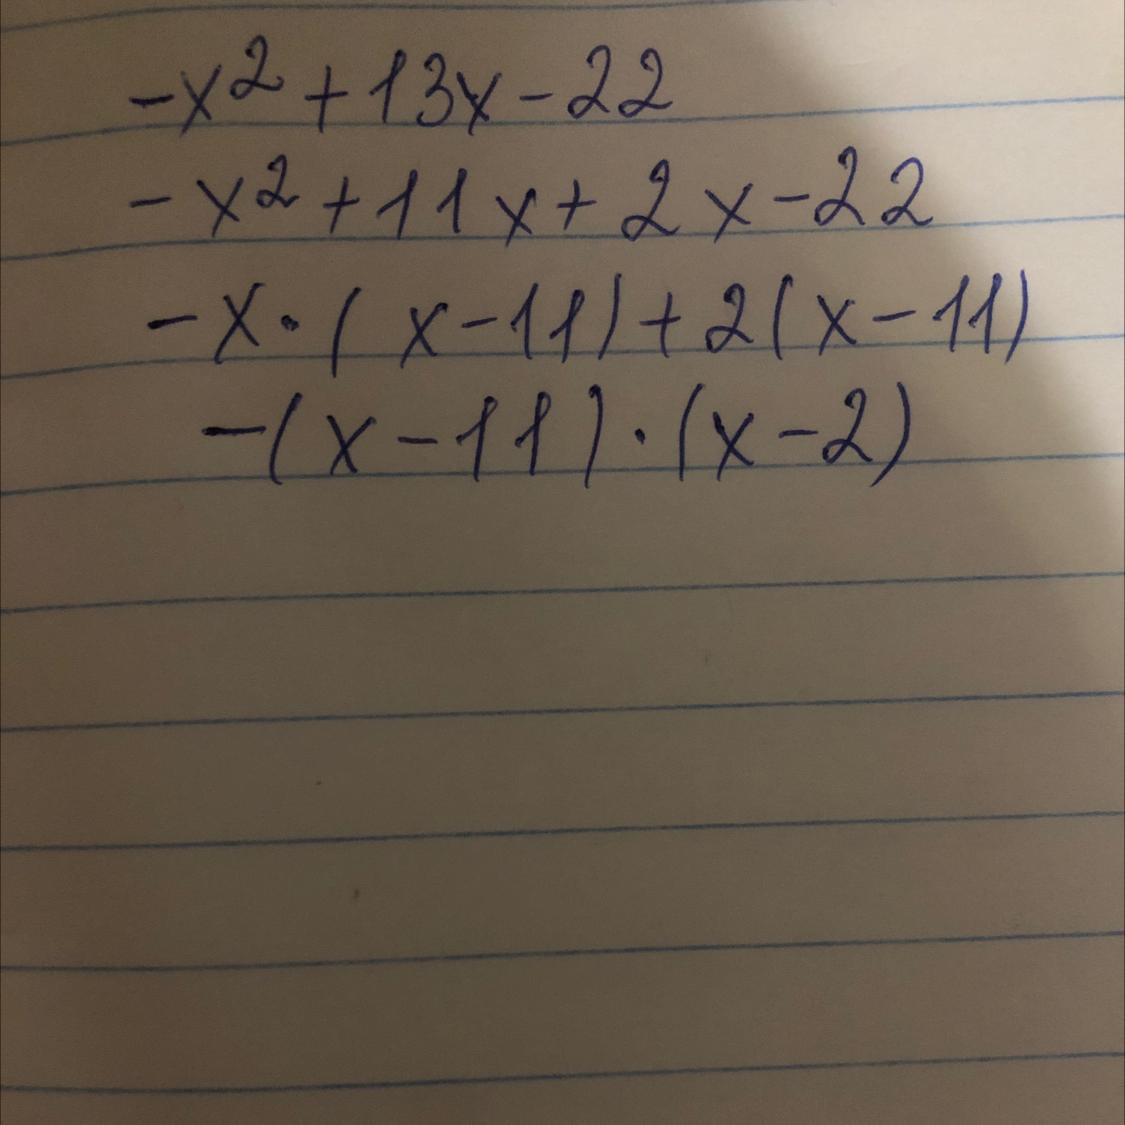 -x² + 13x - 22
-x² + 11x + 2x - 22
-x · (x - 11) + 2(x - 11)
-(x - 11) · (x - 2)